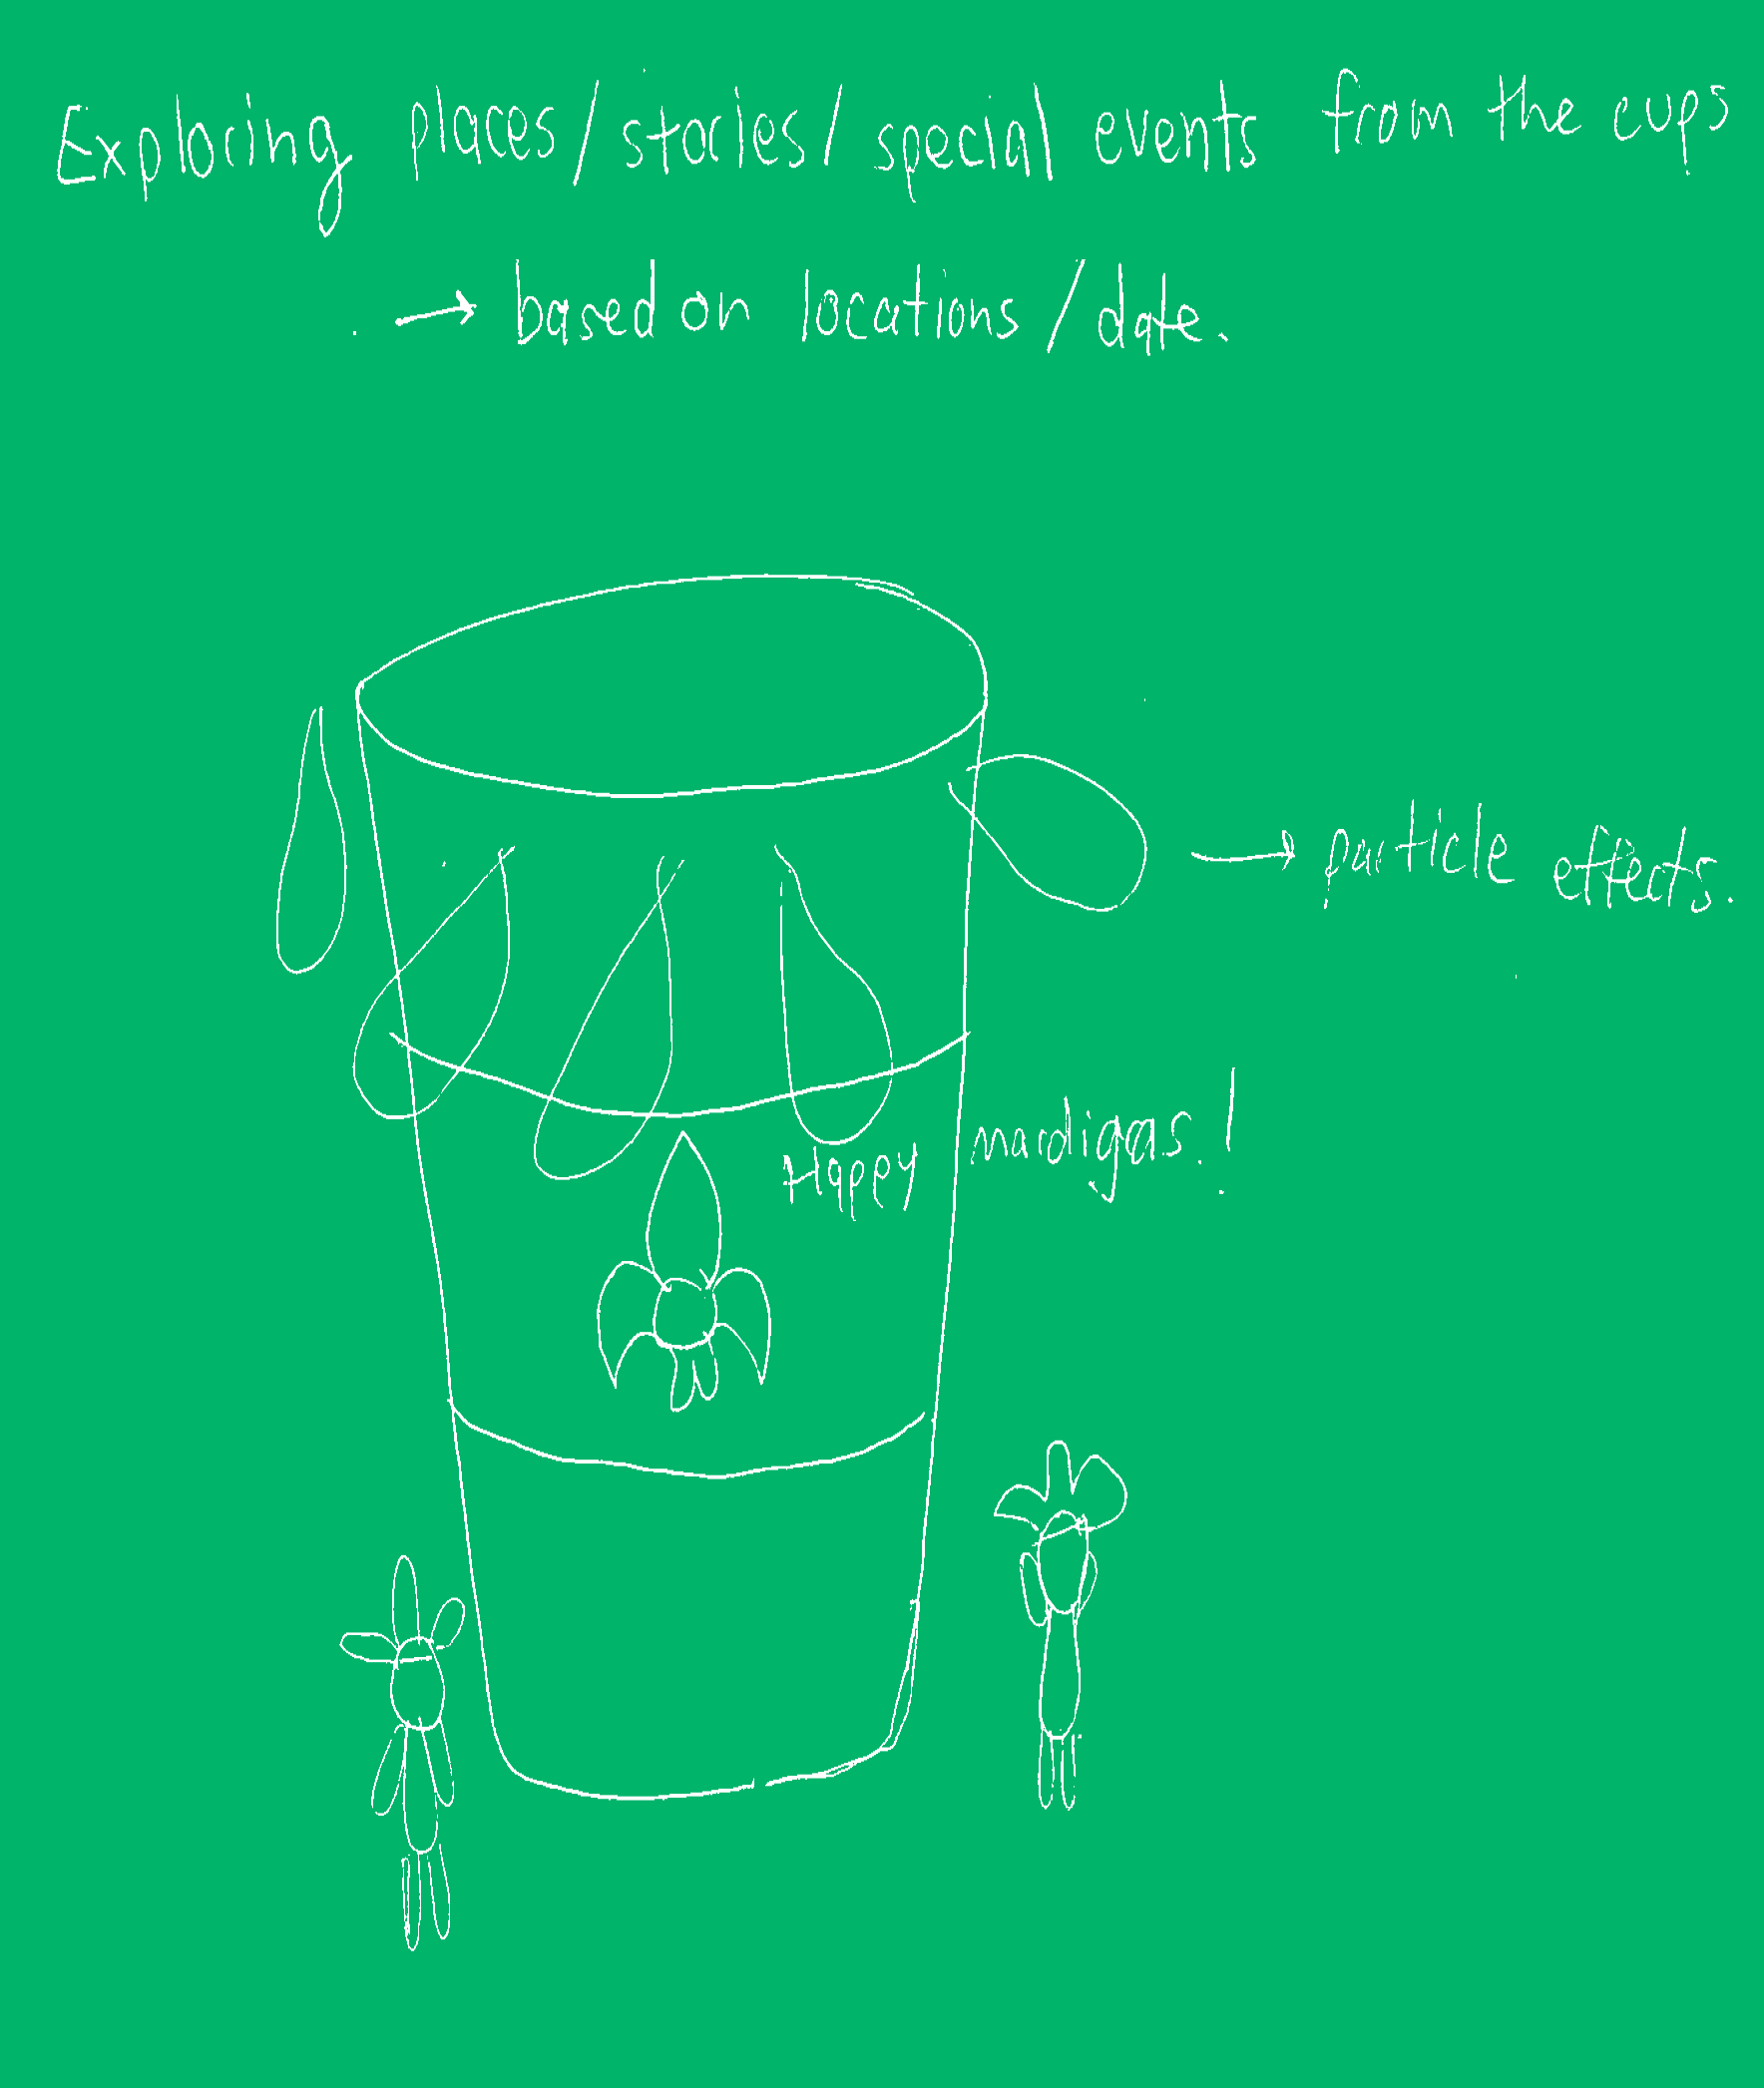 Exploring places/stories/special events from the cups
→ based on locations/date.
→ particle effects.
Happy mardigras!